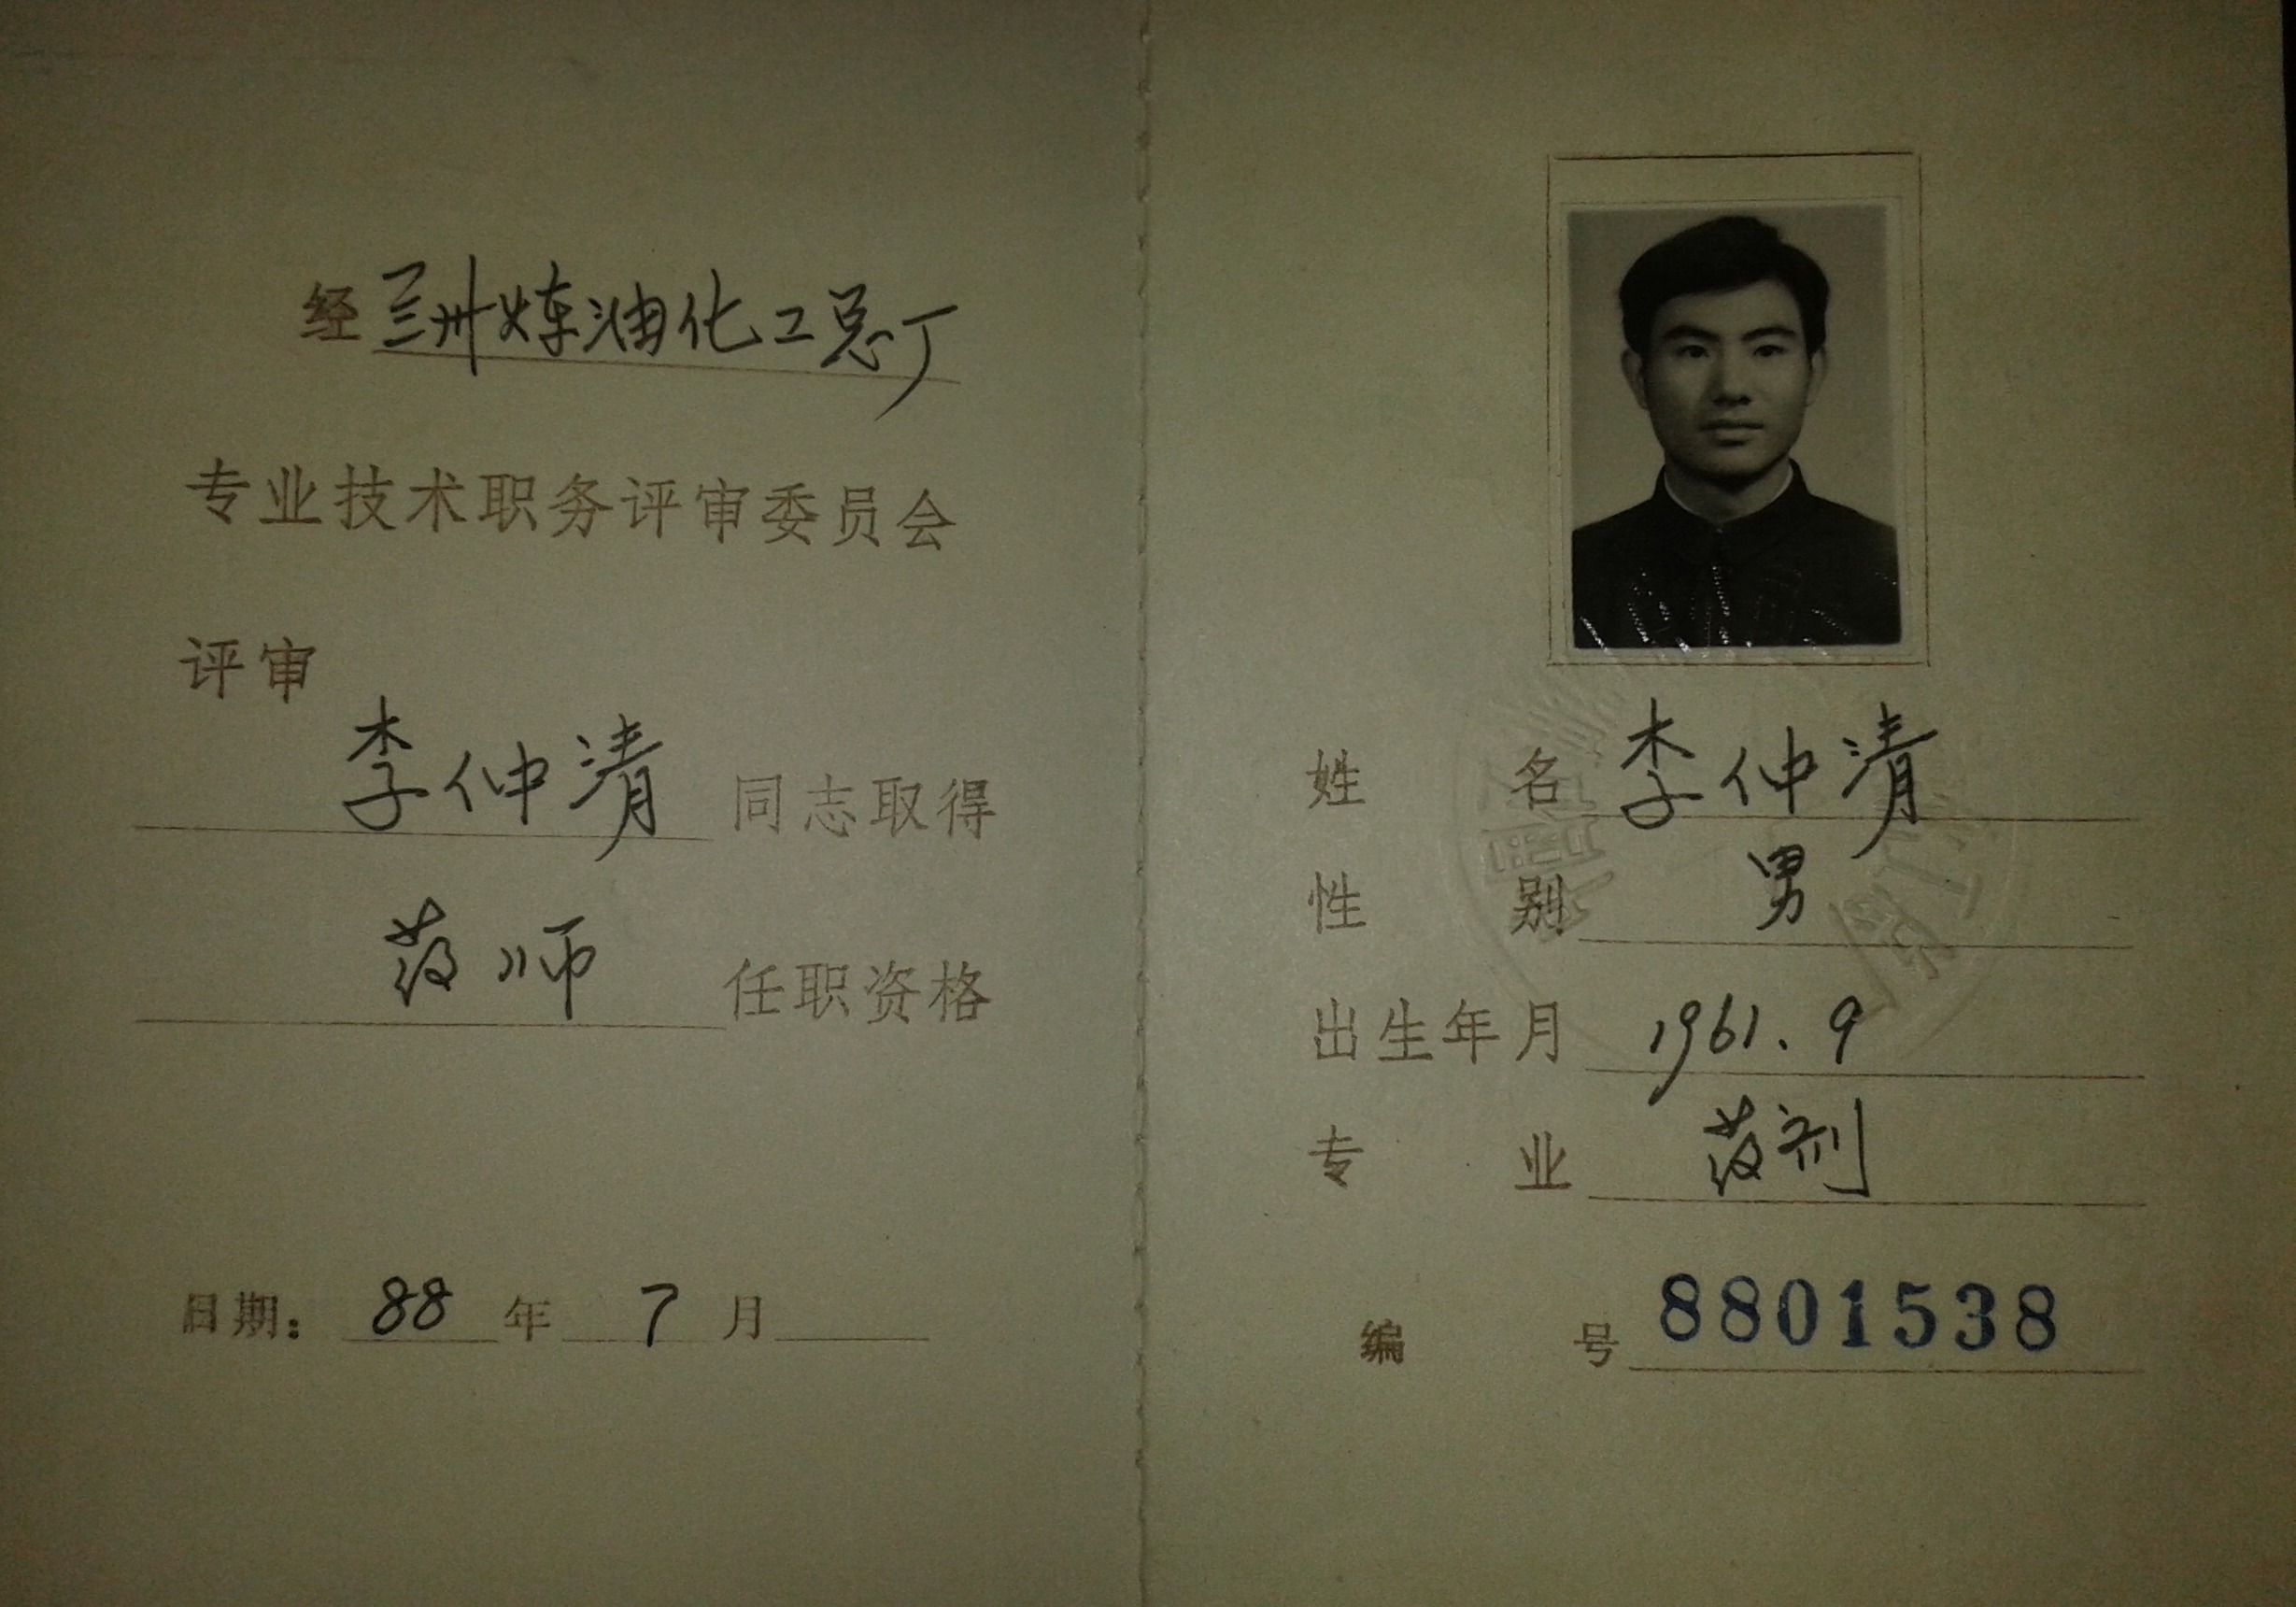 经兰州炼油化工总厂
专业技术职务评审委员会
评审
李仲清 同志取得
药师 任职资格
日期: 88 年 7 月
姓名 李仲清
性别 男
出生年月 1961.9
专业 药剂
编号 8801538